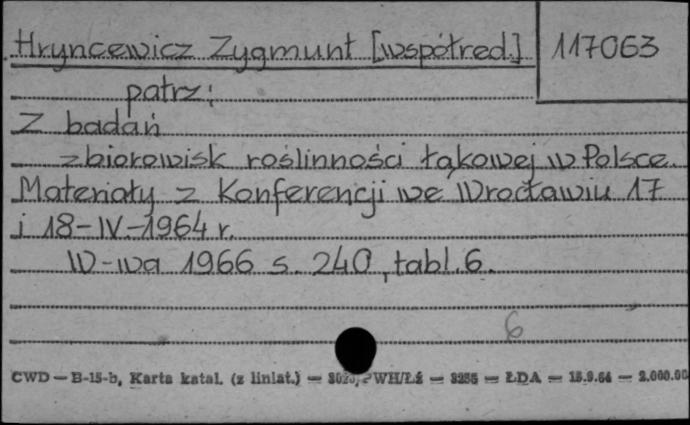 Hryncewicz Zygmunt [współred.] 117063
patrz:
Z badań
zbiorowisk roślinności łąkowej w Polsce.
Materiały z Konferencji we Wrocławiu 17
i 18-IV-1964 r.
W-wa 1966 s. 240, tabl. 6.
6
CWD — B-15-b, Karta katal. (z liniat.) — WH/Łź — 3255 — ŁDA — 15.9.64 — 2.000.00